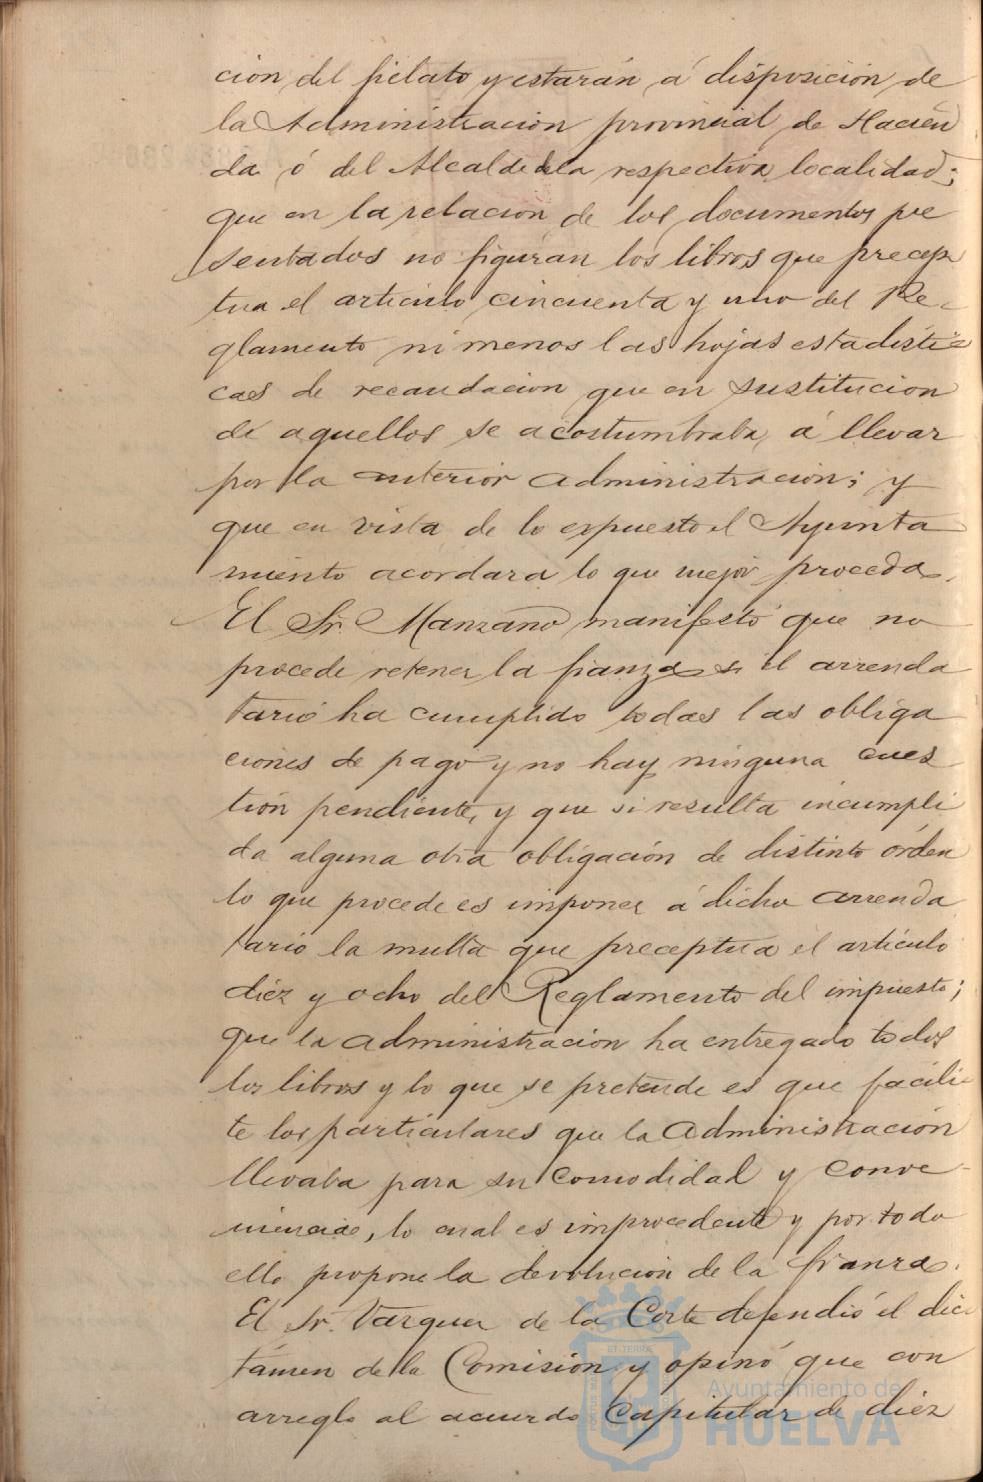 cion del fielato y estarán á disposicion de
la Administracion provincial de Hacien
da ó del Alcalde de la respectiva localidad;
que en la relacion de los documentos pre
sentados no figuran los libros que precep
tua el articulo cincuenta y uno del Re-
glamento ni menos las hojas estadisti-
cas de recaudacion que en sustitucion
de aquellos se acostumbraba á llevar
por la anterior administracion; y
que en vista de lo expuesto el Ayunta
miento acordara lo que mejor proceda.
El Sr. Manzano manifestó que no
procede retener la fianza si el arrenda
tario ha cumplido todas las obliga
ciones de pago y no hay ninguna cues
tión pendiente, y que si resulta incumpli
da alguna otra obligación de distinto órden
lo que procede es imponer á dicho arrenda
tario la multa que preceptua el articulo
diez y ocho del Reglamento del impuesto;
que la administracion ha entregado todos
los libros y lo que se pretende es que facili
te los particulares que la Administración
llevaba para su comodidad y conve-
niencia, lo cual es improcedente y por todo
ello propone la devolucion de la fianza.
El Sr. Vazquez de la Corte defendió el dic
támen de la Comision y opinó que con
arreglo al acuerdo Capitular de diez
Ayuntamiento de
HUELVA